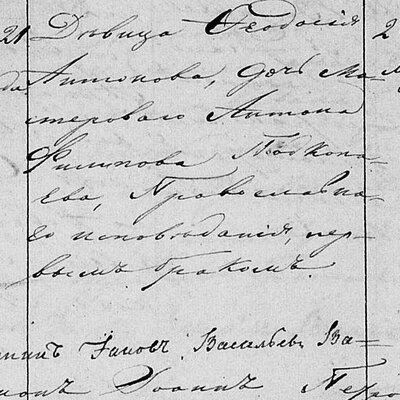 21 Дѣвица Ѳеодосія 2
Антонова, дочь ма-
стероваго Антона
Филипова Подкопа-
ева, Православна-
го исповѣданія, пер-
вымъ бракомъ.
Васильев За-
Іоанн